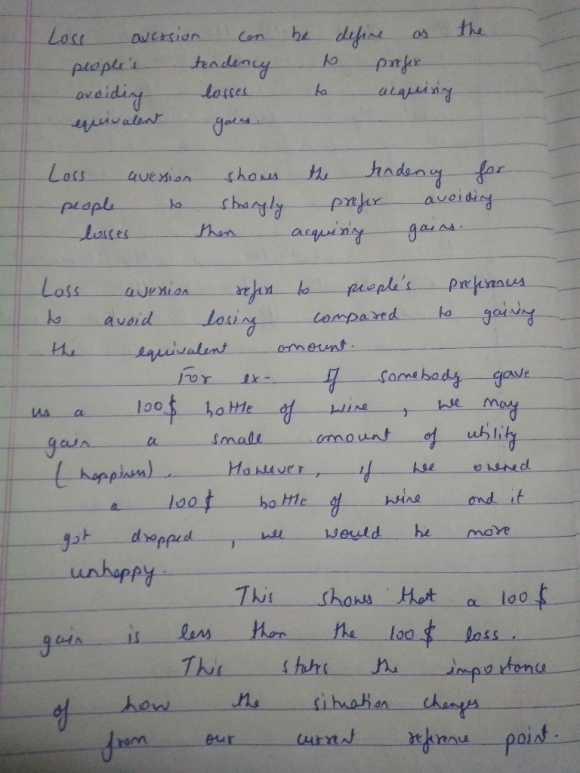 Loss aversion can be define as the
people's tendency to prefer
avoiding losses to acquiring
equivalent gains.
Loss aversion shows the tendency for
people to strongly prefer avoiding
losses than acquiring gains.
Loss aversion refers to people's preferences
to avoid losing compared to gaining
the equivalent amount.
For ex- If somebody gave
us a 100$ bottle of wine, we may
gain a small amount of utility
(happiness). However, if we owned
a 100$ bottle of wine and it
got dropped, we would be more
unhappy.
This shows that a 100$
gain is less than the 100$ loss.
This states the importance
of how the situation changes
from our current reference point.